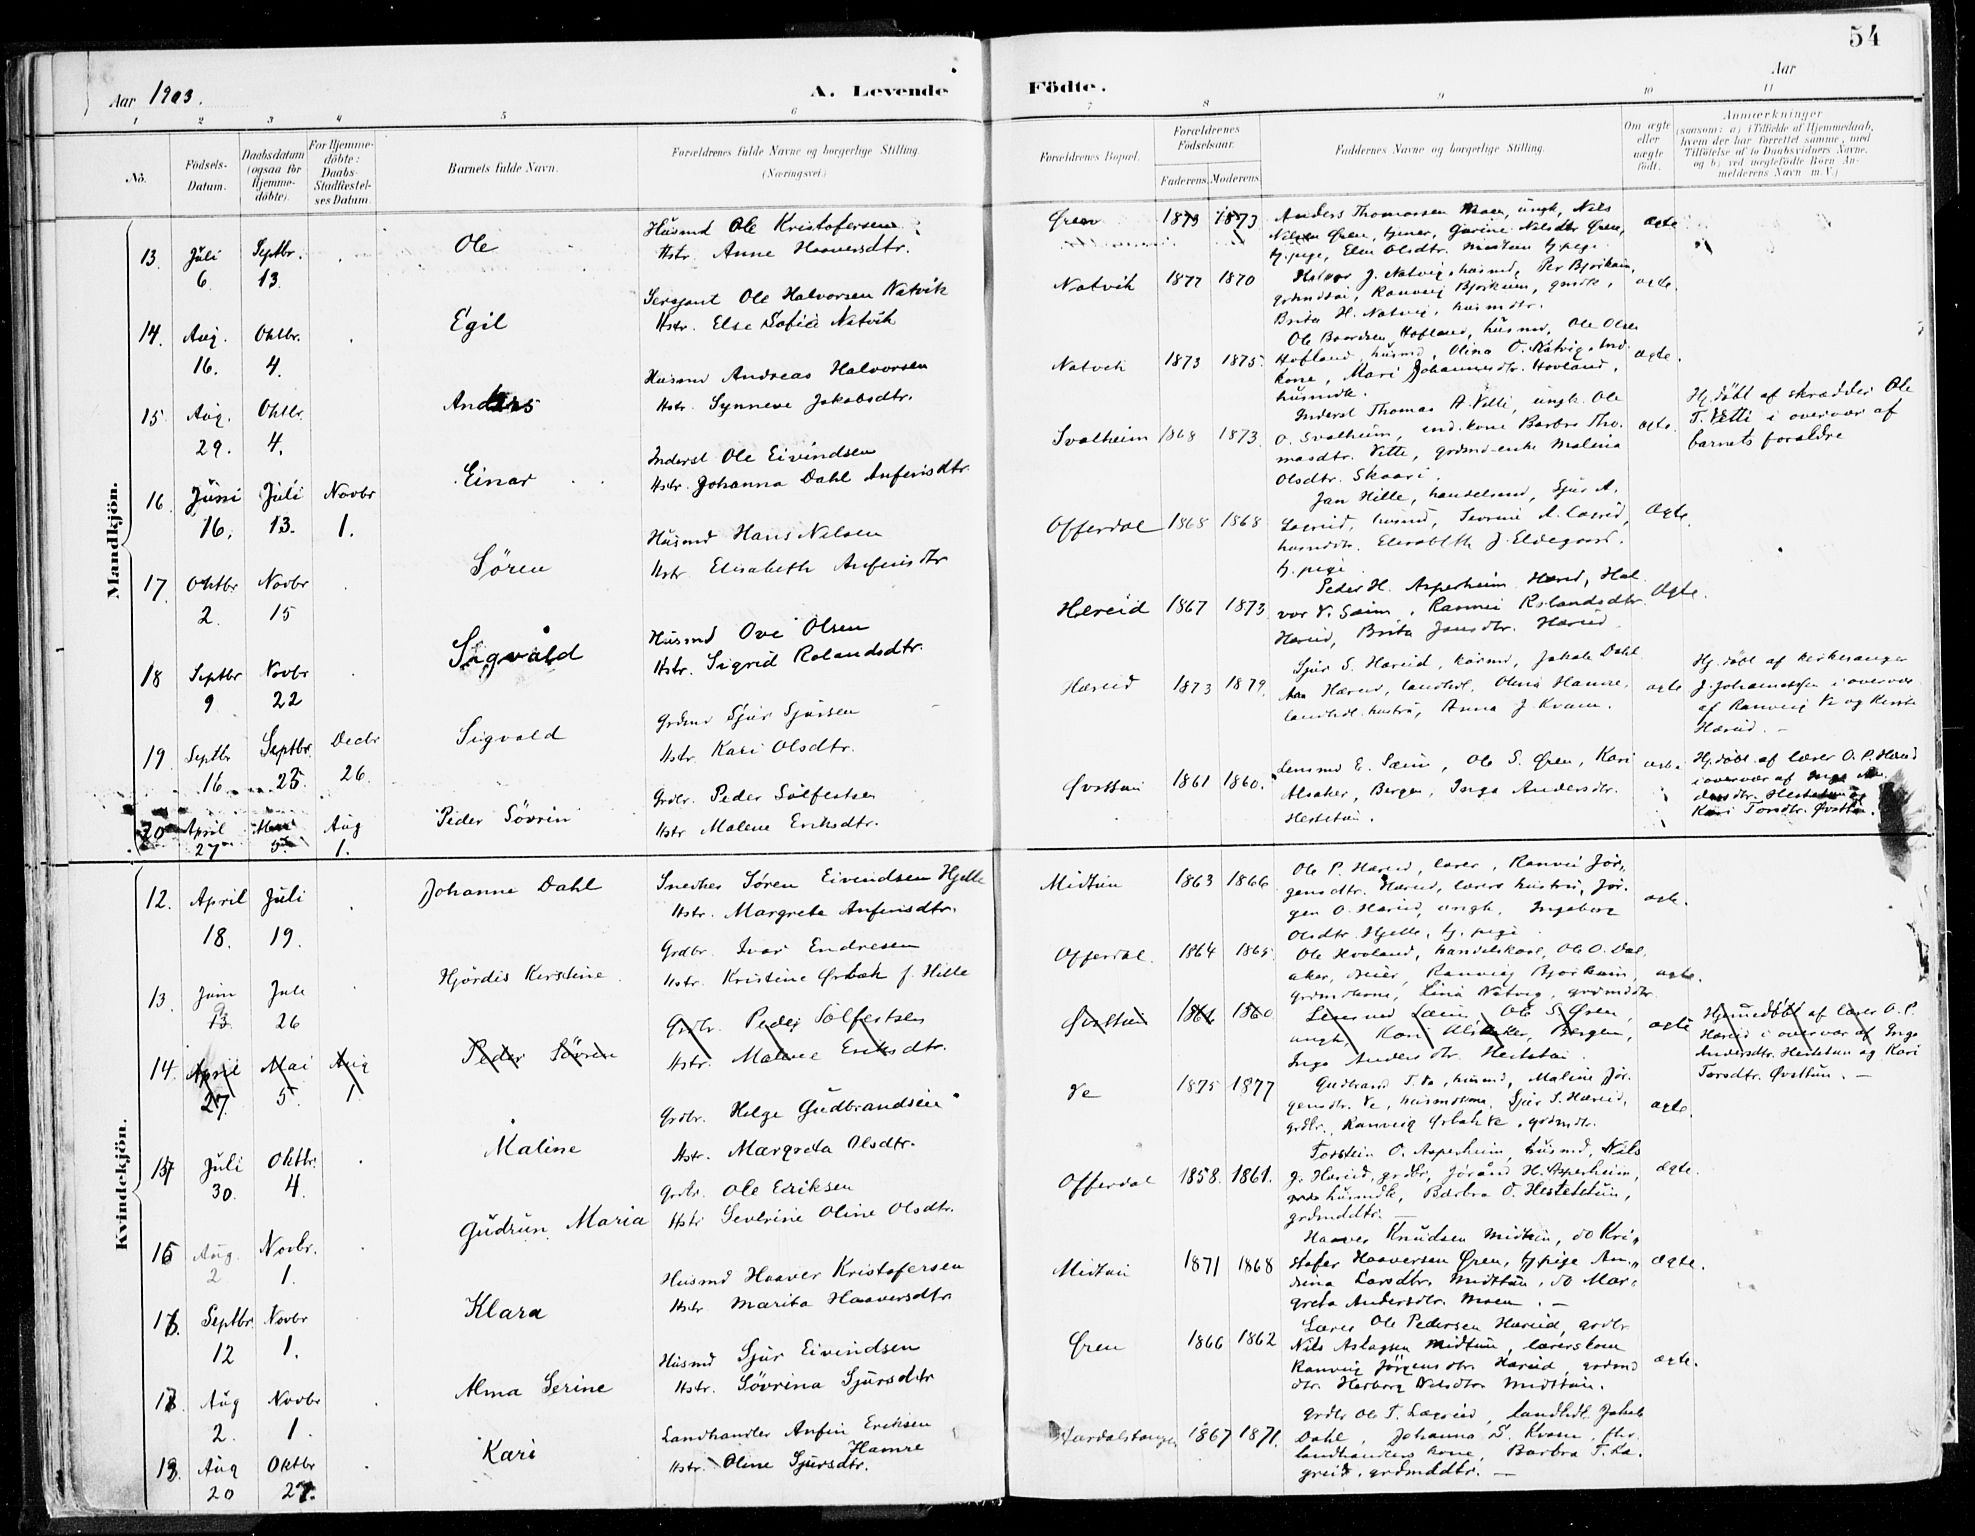 54
Aar 1903.
A. Levende Födte.
Aar
1 2 3 4 5 6 7 8 9 10 11
No.
Födsels-Datum.
Daabsdatum (ogsaa for Hjemme-döbte).
For Hjemme-döbte: Daabs-Stadfæstel-ses Datum.
Barnets fulde Navn.
Forældrenes fulde Navne og borgerlige Stilling. (Næringsvei.)
Forældrenes Bopæl.
Forældrenes Födselsaar.
Faderens. Moderens.
Faddernes Navne og borgerlige Stilling.
Om ægte eller uægte födt.
Anmærkninger
(saasom: a) i Tilfælde af Hjemmedaab, hvem der har forrettet samme, med Tilföielse af to Daabsvidners Navne. og b) ved uægtefödte Börn An-melderens Navn m. V.)
Mandkjön.
13 Juli 6 Septbr. 13. Ole
Husmd Ole Kristofersen
Hstr. Anne Haaversdtr.
Øren 1873 1873
Anders Thomassen Moen, ungk, Nils
Nilsen Øren, tjener, Gurine Nilsdtr Øren,
tj.pige, Elen Olsdtr. Midtun tj.pige
ægte
14. Aug. 16. Oktbr. 4. Egil
Sersjant Ole Halvorsen Natvik
Hstr. Else Sofie Natvik
Natvik 1877 1870
Halvor J. Natvig, husmd, Per Bjørkum,
Brita H. Natvig, husmdtr.
ægte.
15 Aug. 29. Oktbr. 4. Anders
Husmd Andreas Halvorsen
Hstr. Synneve Jakobsdtr.
Natvik 1873 1875.
Ole Baardsen Hofland, husmd, Ole Olsen
Hofland, husmd, Olina O. Natvig, ind.
kone, Mari Johannesdtr. Hovland,
husmdk.
ægte.
16. Juni 16. Juli 13. Novbr 1. Einar
Inderst Ole Eivindsen
Hstr. Johanna Dahl Anfinsdtr.
Svalheim 1868 1873.
Inderst Thomas A. Vetti, ungk. Ole
O. Svalheim, ind.kone Barbra Tho-
masdtr. Vetti, grdmd-enke Malena
Olsdtr. Skaari.
ægte.
Hj.døbt af skrædder Ole
T. Vetti i overvær af
barnets forældre
17. Oktbr 2. Novbr 15 Søren
Husmd Hans Nilsen
Hstr. Elisabeth Anfinsdtr
Offerdal 1868 1868
Jan Hille, handelsmd, Sjur A.
husmdtr. Elisabeth J. Eldegaard.
tj.pige
Ægte.
18 Septbr 9 Novbr 22 Sigvald
Husmd Ove Olsen
Hstr. Sigrid Rolandsdtr.
Hæreid 1867 1873
Peder H. Asperheim Hæreid, Hal-
vor V. Sæim, Ranvei Rolandsdtr.
Hæreid, Brita Jonsdtr. Hæreid
Ægte.
19. Septbr 16. Septbr. 25 Decbr 26. Sigvald
Grdmd Sjur Sjursen
Hstr. Kari Olsdtr.
Hæreid 1873 1879.
Sjur S. Hæreid, kårmd, Jakob Dahl
Hæreid, landhdl. Olina Hamre,
landhdl. hustru, Anna J. Kvam.
ægte
Hj. døbt af kirkesanger
J. Johannessen i overvær
af Ranveig Ve og
Hæreid.
20 April 27 Mai 5. Aug 1. Peder Sövrin
Grdbr. Peder Sølfestsen
Hstr Malene Eriksdtr.
Øvsttun 1861 1860.
Lensmd E. Sæim, Ole S. Øren, Kari
Alsaker, Bergen, Inga Andersdtr.
Hestetun.
ægte.
Hj.døbt af lærer O. P. Hæreid
i overvær af Inga An-
dersdtr. Hestetun og
Kari Torsdtr. Øvsttun.
Kvindekjön.
12. April 18. Juli 19. Johanne Dahl
Snedker Søren Eivindsen Hjelle
Hstr. Margrete Anfinsdtr.
Midtun 1863 1866
Ole P. Hæreid, lærer, Ranvei Jör-
gensdtr. Hæreid, lærers hustru, Jör-
gen O. Hæreid, ungk. Ingeborg
Olsdtr. Hjelle, tj.pige
ægte.
13. Juni 9 13. Juli 26 Hjørdis Kirstine
Grdbr. Ivar Endresen
Hstr. Kristine Ørbæk f. Hille
Offerdal. 1864 1865.
Ole Hovland, handelskarl, Ole O. Dal
aker, Ranveig Bjørkum,
Lina Natvig, grdmddtr.
ægte.
14. April 27. Mai 5. Aug 1. Peder Sövren
Grdbr. Peder Sølfestsen
Hstr. Malene Eriksdtr.
Øvsttun 1861 1860
Lensmd Sæim, Ole S Øren,
ungk, Kari Alsaker, Bergen,
Inga Andersdtr. Hestetun.
ægte
Hjemmedøbt af lærer O. P.
Hæreid i overvær af Inga
Andersdtr. Hestetun og Kari
Torsdtr. Øvsttun.
Juli 30. Oktbr. 4. Maline
Grdbr. Helge Gudbrandsen
Hstr. Margreta Olsdtr.
Ve 1875 1877
Gudbrand T. Ve, husmd, Maline Jør-
gensdtr. Ve, husmdkone, Sjur S. Hæreid,
grdbr. Ranveig Ørbæk Ve, grdmdtr.
ægte.
Aug. 2 Novbr. 1. Gudrun Maria
Grdbr. Ole Eriksen
Hstr Severine Oline Olsdtr.
Offerdal 1858. 1861.
Torstein O. Asperheim, husmd, Nils
J. Hæreid, grdbr, Jørånd H. Asperheim,
husmdk, Barbra O. Hestetun,
grdmddtr.
ægte.
Septbr 12 Novbr 1. Klara
Husmd Haaver Kristofersen
Hstr. Marita Haaversdtr
Midtun 1871 1868
Haaver Knudsen Midtun, do Kri-
stofer Haaversen Øren, tj.pige An-
dina Larsdtr. Midttun, do Mar-
greta Andersdtr. Moen.
ægte.
Aug 2. Novbr 1. Alma Serine
Husmd Sjur Eivindsen
Hstr. Sövrina Sjursdtr
Øren 1866 1862
Lærer Ole Pedersen Hæreid, grdbr
Nils Aslagsen Midtun, lærerskone
Ranveig Jørgensdtr. Hæreid, grdmd
dtr. Herborg Nilsdtr. Midttun.
ægte.
Aug 20 Oktbr 27. Kari
Landhandler Anfin Eriksen Hamre
Hstr. Oline Sjursdtr.
Aardalstangen 1867 1871.
Grdbr Ole T. Lægreid, landhdl. Jakob
Dahl, Johanna S. Kvam,
landhandlers kone, Barbra T. Læ-
greid. grdmddtr.